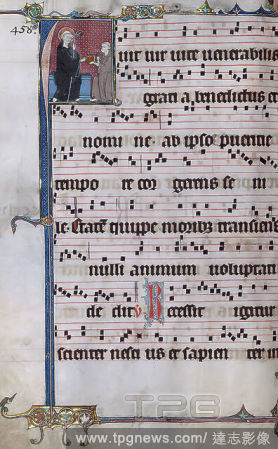 458.
uir uir uite uenerabilis
grati a benedictus et
nomi ne ab ipso puericie
tempo re cor gerens se ni
le Etatem quippe moribus transiens
nulli animum uoluptati
de dit V R ecessit igitur
scienter nesci us et sapien ter in
TPG
www.tpgnews.com/達志影像